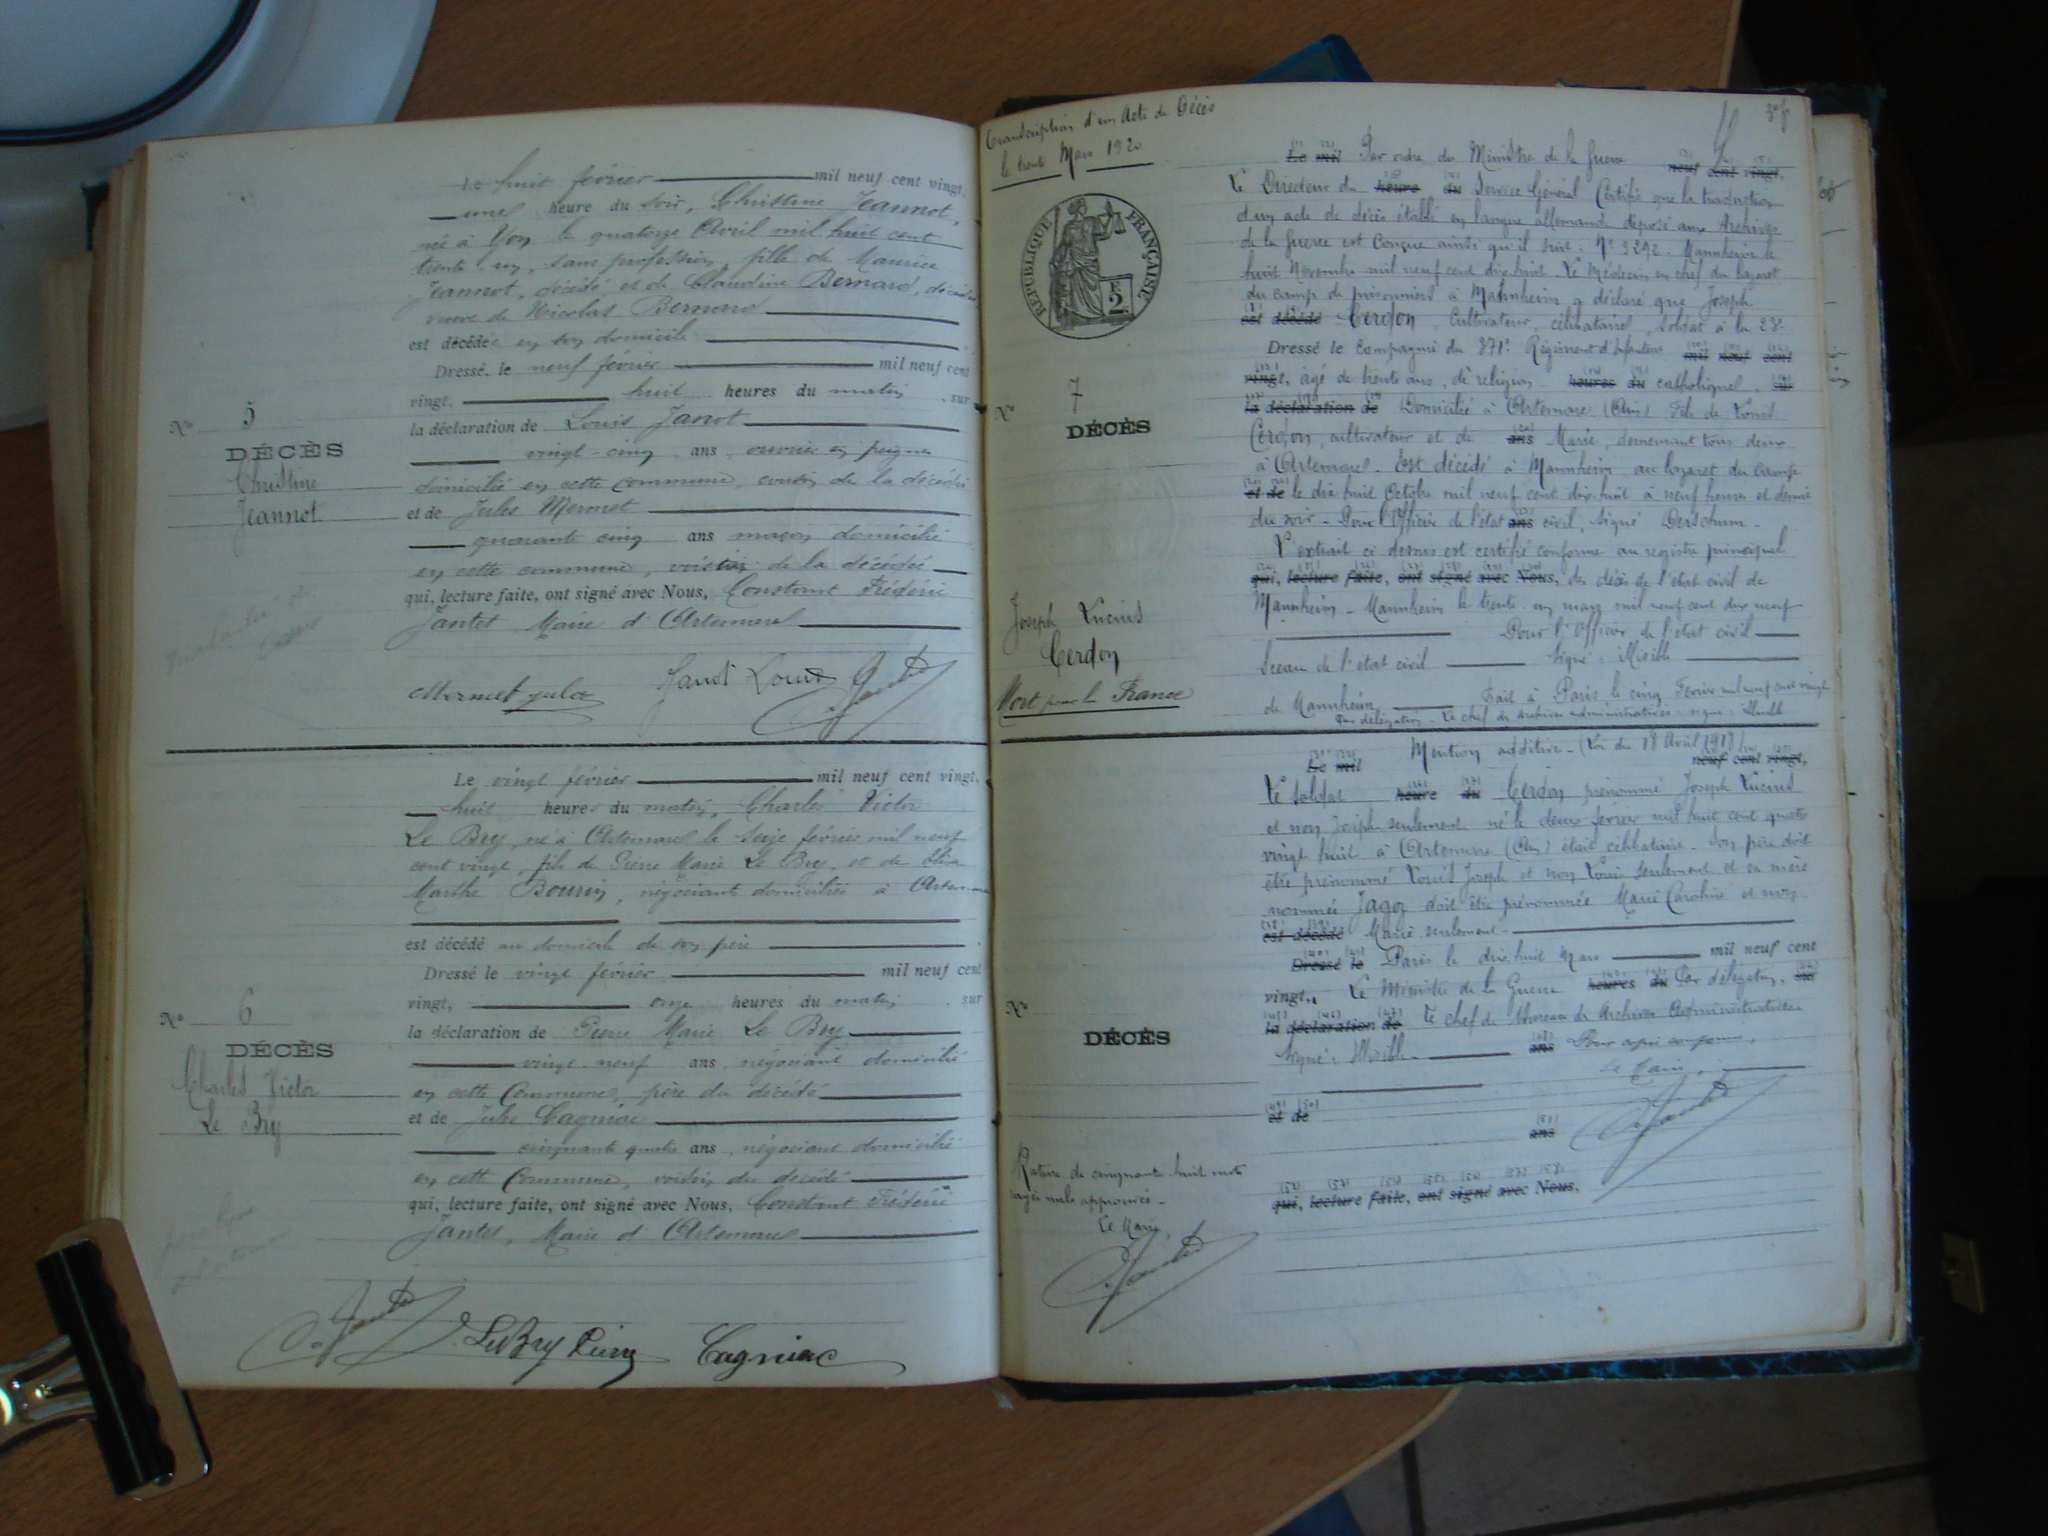 Le huit février mil neuf cent vingt,
une heure du soir, Christine Jeannot,
née à Yon le quatorze Avril mil huit cent
trente un, sans profession, fille de Maurice
Jeannot, décédé et de Claudine Bernard, décédée
veuve de Nicolas Bernard
est décédée en son domicile
Dressé le neuf février mil neuf cent
vingt, huit heures du matin, sur
la déclaration de Louis Janot
vingt-cinq ans, ouvrier en peignes
domicilié en cette commune, cousin de la décédée
et de Jules Mermet
quarante cinq ans maçon domicilié
en cette commune, voisin de la décédée
qui, lecture faite, ont signé avec Nous, Constant Frédéric
Jantet Maire d'Artemare
No 5
DÉCÈS
Christine
Jeannot
Mermet jules
Le vingt février mil neuf cent vingt,
huit heures du matin, Charles Victor
Le Bry, né à Artemare le seize février mil neuf
cent vingt, fils de Pierre Marie Le Bry, et de
Marthe Bourin, négociants domiciliés à Artemare
est décédé au domicile de son père
Dressé le vingt février mil neuf cent
vingt, onze heures du matin, sur
la déclaration de Pierre Marie Le Bry
vingt-neuf ans, négociant domicilié
en cette Commune, père du décédé
et de Jules Cagniac
cinquante quatre ans, négociant domicilié
en cette Commune, voisin du décédé
qui, lecture faite, ont signé avec Nous, Constant Frédéric
Jantet, Maire d'Artemare
No 6
DÉCÈS
Charles Victor
Le Bry
Le Bry Pierre Cagniac
Transcription d'un Acte de Décès
le trente Mars 1920
RÉPUBLIQUE FRANÇAISE
E 2
Le mil Par ordre du Ministre de la Guerre neuf cent vingt,
Le Directeur du heure du Service Général Certifie que la traduction
d'un acte de décès établi en langue allemande déposé aux Archives
de la Guerre est Conçue ainsi qu'il suit: No 3292. Mannheim le
huit Novembre mil neuf cent dix huit. Le Médecin en chef du lazaret
du camp de prisonniers à Mannheim a déclaré que Joseph
est décédé Cerdon, Cultivateur, célibataire, soldat à la 23e
Dressé le Compagnie du 371e Régiment d'Infanterie mil neuf cent
vingt, âgé de trente ans, de religion heures du catholique, sur
la déclaration de Domicilié à Artemare (Ain) fils de Louis
Cerdon, cultivateur et de ans Marie, demeurant tous deux
à Artemare. Est décédé à Mannheim au lazaret du camp
et de le dix huit Octobre mil neuf cent dix huit à neuf heures et demie
du soir. Pour l'Officier de l'état ans civil, signé Derschum.
L'extrait ci dessus est certifié conforme au registre principal
qui, lecture faite, ont signé avec Nous, des décès de l'état civil de
Mannheim - Mannheim le trente un mars mil neuf cent dix neuf
Pour l'Officier de l'état civil
Sceau de l'état civil signé: illisible
de Mannheim Fait à Paris le cinq Février mil neuf cent vingt
Par délégation - Le chef des Archives administratives - signé: illisible
No 7
DÉCÈS
Joseph Lucius
Cerdon
Mort pour la France
Le mil Mention additive - (Loi du 18 Avril 1918) neuf cent vingt,
Le soldat heure du Cerdon prénommé Joseph Lucius
et non Joseph seulement né le deux février mil huit cent quatre
vingt huit à Artemare (Ain) était célibataire. Son père doit
être prénommé Louis Joseph et non Louis seulement et sa mère
nommée Jagoz doit être prénommée Marie Caroline et non
est décédé Marie seulement
Dressé le Paris le dix huit Mars mil neuf cent
vingt, Le Ministre de la Guerre heures du Par délégation, sur
la déclaration de Le chef du Bureau des Archives Administratives
Signé: Illisible ans Pour copie conforme,
Le Maire,
et de
ans
qui, lecture faite, ont signé avec Nous,
No
DÉCÈS
Rature de cinquante huit mots
rayés nuls approuvés -
Le Maire,